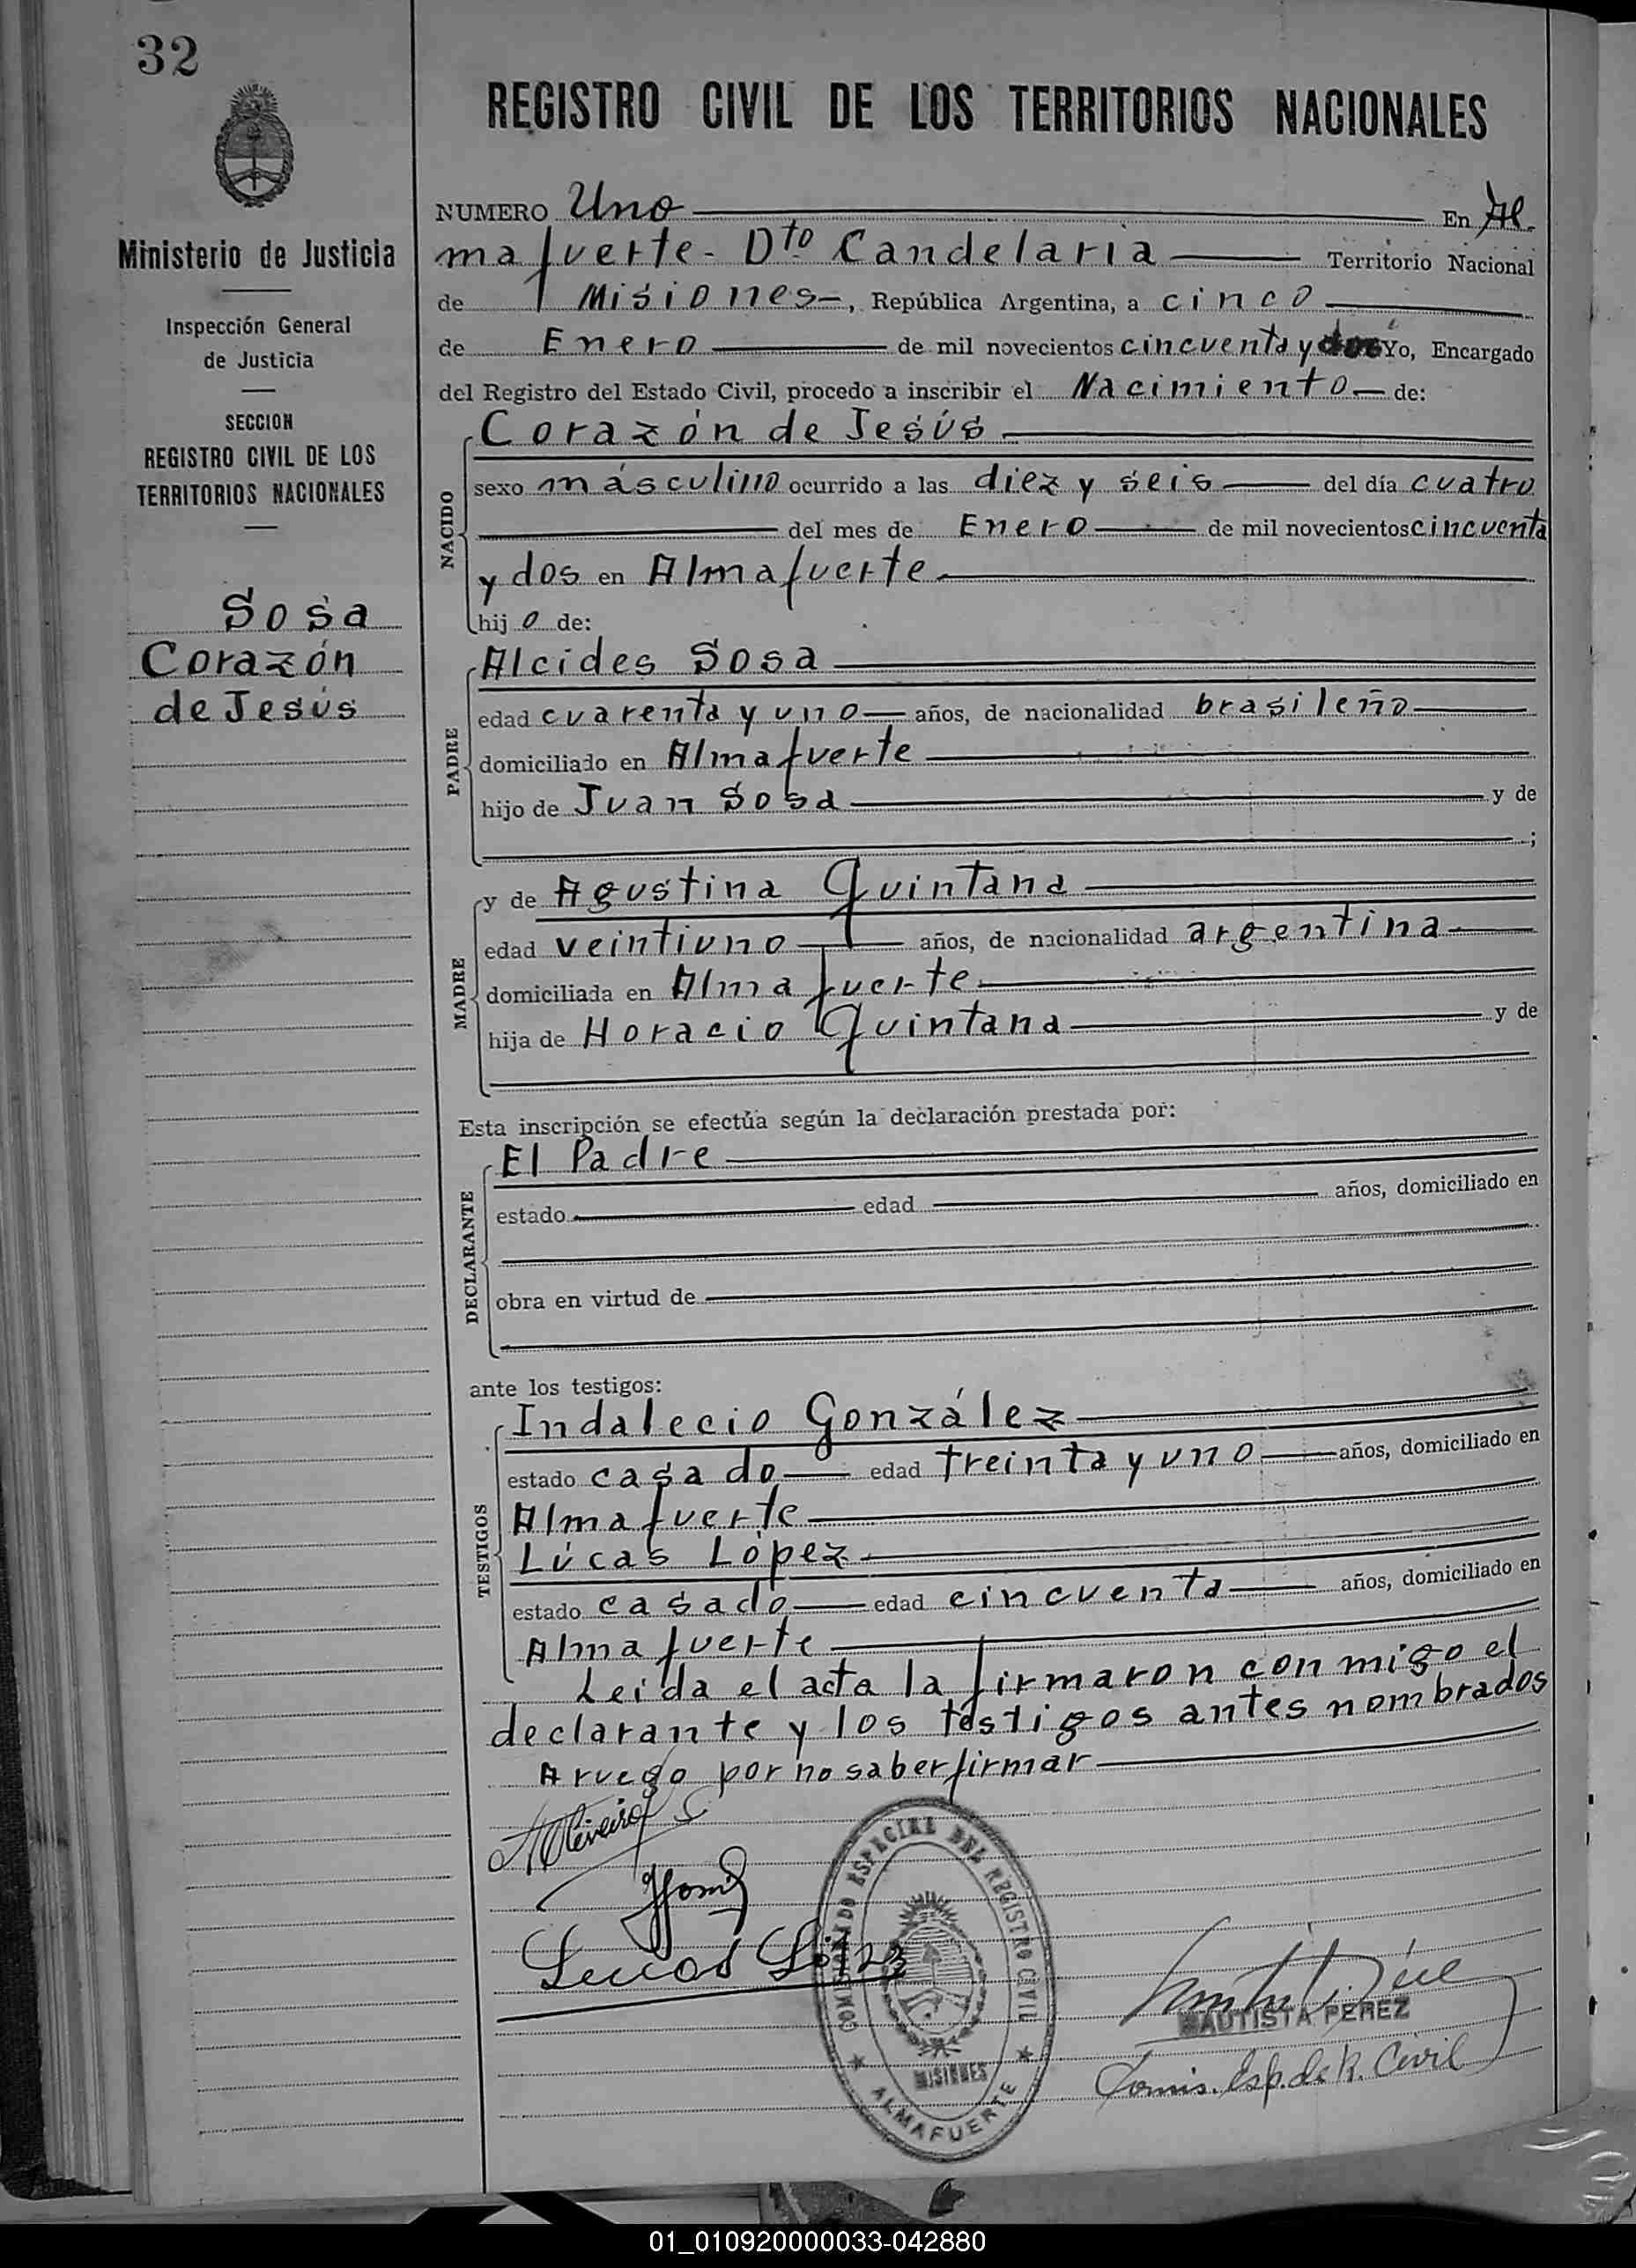 32
REGISTRO CIVIL DE LOS TERRITORIOS NACIONALES
Ministerio de Justicia
Inspección General
de Justicia
SECCION
REGISTRO CIVIL DE LOS
TERRITORIOS NACIONALES
Sosa
Corazón
de Jesús
NUMERO Uno En Al-
mafuerte - Dto Candelaria Territorio Nacional
de Misiones, República Argentina, a cinco
de Enero de mil novecientos cincuenta y dos Yo, Encargado
del Registro del Estado Civil, procedo a inscribir el Nacimiento de:
NACIDO
Corazón de Jesús
sexo másculino ocurrido a las diez y seis del día cuatro
del mes de Enero de mil novecientos cincuenta
y dos en Almafuerte
hij o de:
PADRE
Alcides Sosa
edad cuarenta y uno años, de nacionalidad brasileño
domiciliado en Almafuerte
hijo de Juan Sosa y de
;
MADRE
y de Agustina Quintana
edad veintiuno años, de nacionalidad argentina
domiciliada en Almafuerte
hija de Horacio Quintana y de
Esta inscripción se efectúa según la declaración prestada por:
DECLARANTE
El Padre
estado edad años, domiciliado en
obra en virtud de
ante los testigos:
TESTIGOS
Indalecio González
estado casado edad treinta y uno años, domiciliado en
Almafuerte
Lúcas López
estado casado edad cincuenta años, domiciliado en
Almafuerte
Leida el acta la firmaron conmigo el
declarante y los testigos antes nombrados
A ruego por no saber firmar
Lucas López
COMISIONADO ESPECIAL DEL REGISTRO CIVIL
MISIONES
ALMAFUERTE
BAUTISTA PEREZ
Comis. Esp. de R. Civil
01_010920000033-042880